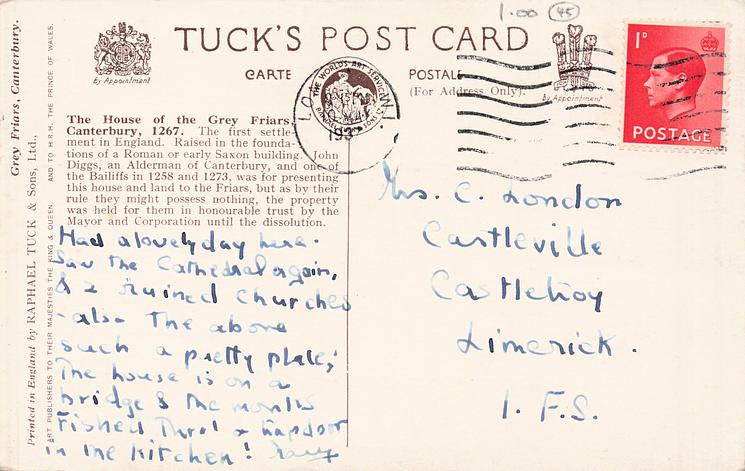 1.00 45
TUCK'S POST CARD
CARTE POSTALE
(For Address Only)
By Appointment
By Appointment
1D
POSTAGE
THE WORLD'S ART SERVICE
Grey Friars, Canterbury.
Printed in England by RAPHAEL TUCK & Sons, Ltd.,
ART PUBLISHERS TO THEIR MAJESTIES THE KING & QUEEN, AND TO H.R.H. THE PRINCE OF WALES.
The House of the Grey Friars,
Canterbury, 1267. The first settle-
ment in England. Raised in the founda-
tions of a Roman or early Saxon building. John
Diggs, an Alderman of Canterbury, and one of
the Bailiffs in 1258 and 1273, was for presenting
this house and land to the Friars, but as by their
rule they might possess nothing, the property
was held for them in honourable trust by the
Mayor and Corporation until the dissolution.
Had a lovely day here.
Saw the Cathedral again,
& 2 ruined churches
- also the above
such a pretty place;
The house is on a
bridge & the monks
Fished thro' a trapdoor
in the kitchen!
Mrs. C. London
Castleville
Castletroy
Limerick.
I.F.S.